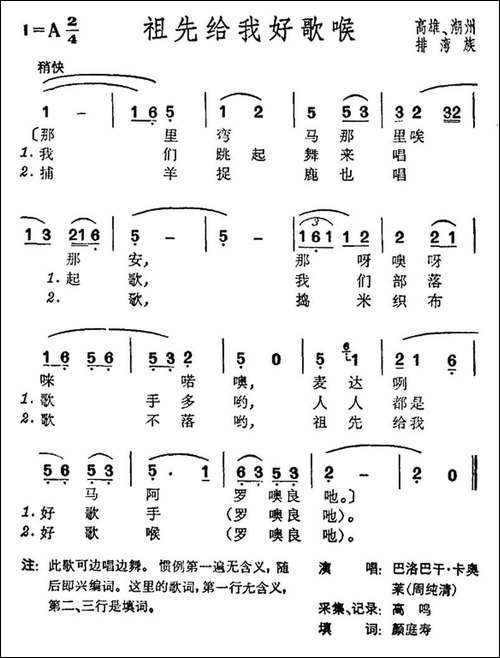 祖先给我好歌喉
1=A 2/4
高雄、潮州
排湾族
稍快
1 - 1 6 5 1 2 5 5 3 3 2 3 2
〔那 里 弯 马 那 里唉
1.我 们 跳 起 舞 来 唱
2.捕 羊 捉 鹿 也 唱
1 3 2 1 6 5 - 5 - 1 6 1 1 2 2 2 1
那 安, 那 呀 噢 呀
1.起 歌, 我 们 部 落
2. 歌, 捣 米 织 布
1 6 5 6 5 3 2 5 0 5 6 2 1 6
咪 喏 噢, 麦 达 咧
1.歌 手 多 哟, 人 人 都 是
2.歌 不 落 哟, 祖 先 给 我
5 6 5 3 5 . 1 6 3 5 3 2 - 2 0
马 阿 罗 噢 良 吔。〕
1.好 歌 手 (罗 噢 良 吔)。
2.好 歌 喉 (罗 噢 良 吔)。
注: 此歌可边唱边舞。惯例第一遍无含义,随
后即兴编词。这里的歌词,第一行无含义,
第二、三行是填词。
演 唱: 巴洛巴干·卡奥
莱(周纯清)
采集、记录: 高 鸣
填 词: 颜庭寿